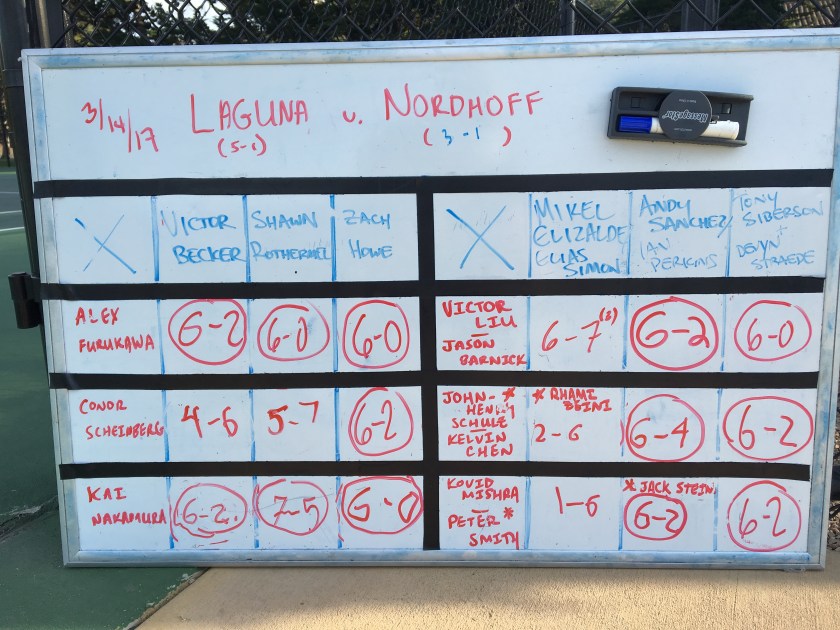 3/14/17 LAGUNA v. NORDHOFF
(5-1) (3-1)
VICTOR BECKER
SHAWN ROTHERMEL
ZACH HOWE
MIKEL ELIZALDE
ELIAS SIMON
ANDY SANCHEZ/
IAN PERKINS
TONY SIBERSON +
DEVYN STRAEDE
ALEX FURUKAWA
6-2
6-0
6-0
VICTOR LIU –
JASON BARNICK
6-7(3)
6-2
6-0
CONOR SCHEINBERG
4-6
5-7
6-2
JOHN-*
HENRY
SCHULZ –
KELVIN
CHEN
* RHAMI BEINI
2-6
6-4
6-2
KAI NAKAMURA
6-2
7-5
6-0
KOVID MISHRA –
PETER *
SMITH
1-6
* JACK STEIN
6-2
6-2